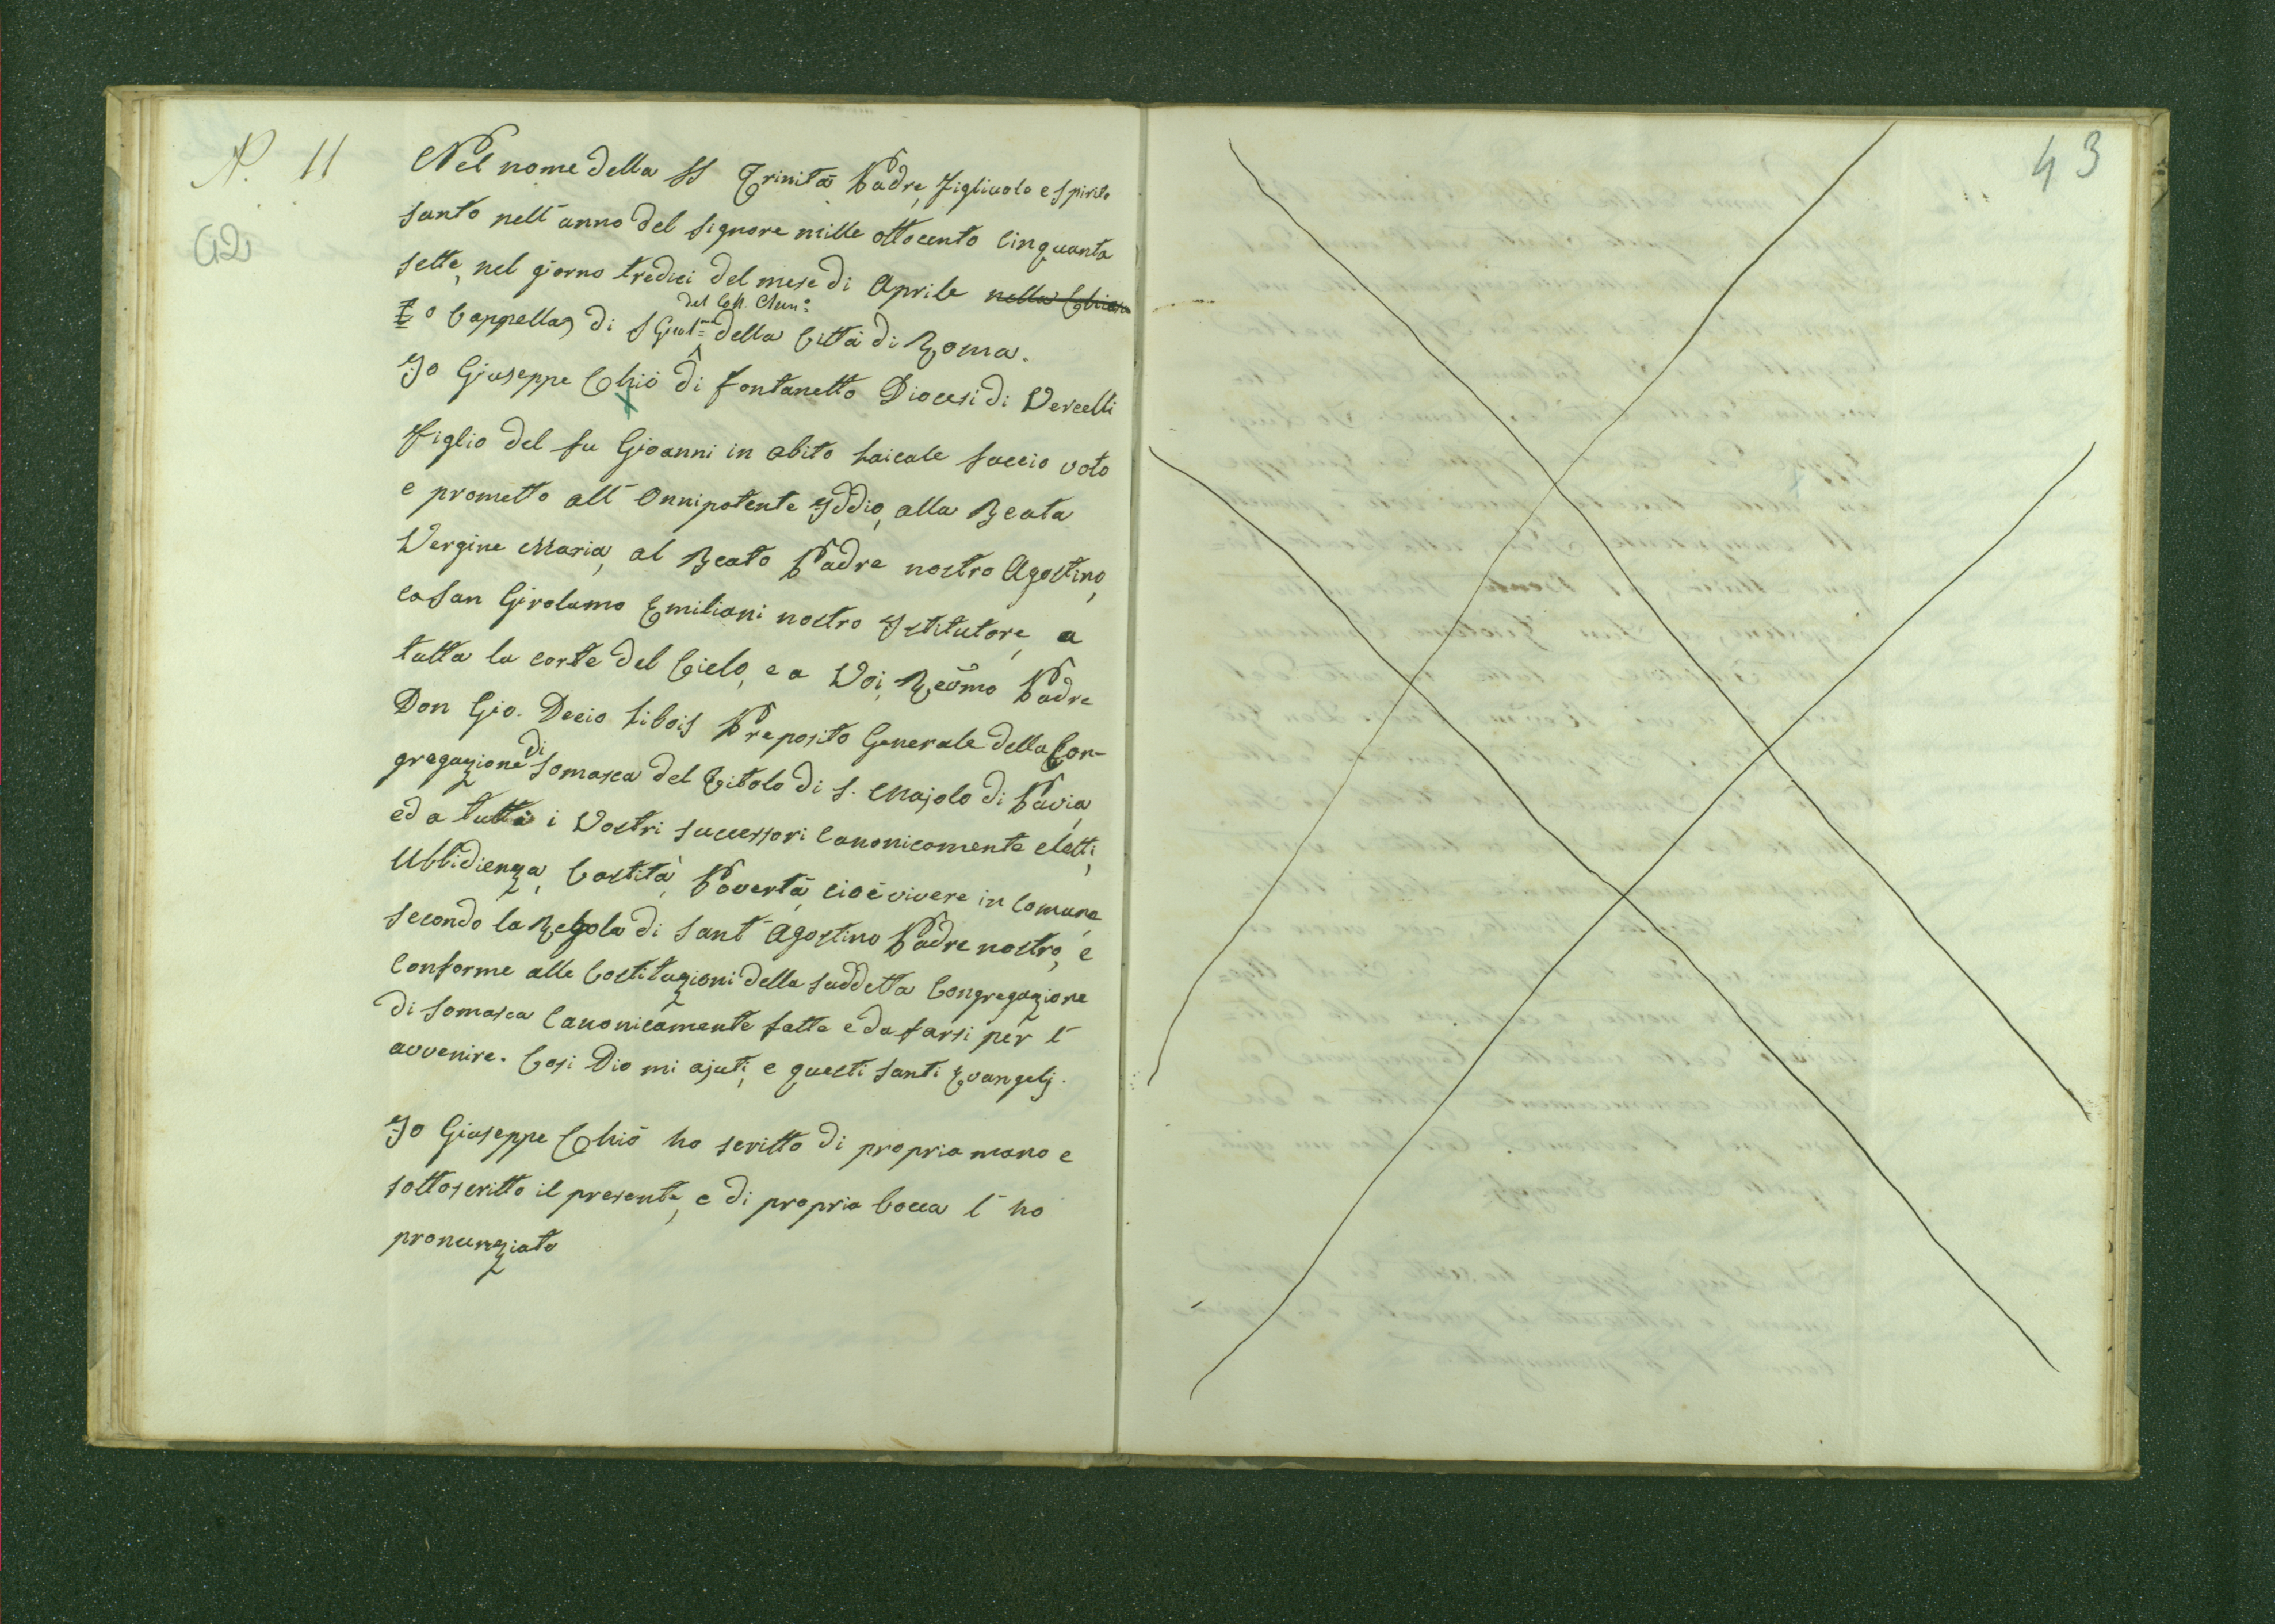 N. 11
42
Nel nome della SS Trinità Padre, Figliuolo e Spirito
Santo nell'anno del Signore mille ottocento Cinquanta
sette, nel giorno tredici del mese di Aprile nella Chiesa
o Cappella di S Girol.mo del Coll. Clem.o della Città di Roma.
Io Giuseppe Chiò di Fontanetto Diocesi di Vercelli
Figlio del fu Gioanni in abito Laicale faccio voto
e prometto all'Onnipotente Iddio, alla Beata
Vergine Maria, al Beato Padre nostro Agostino,
e a San Girolamo Emiliani nostro Istitutore, a
tutta la corte del Cielo, e a Voi, Reṽmo Padre
Don Gio. Decio Libois Preposito Generale della Con-
gregazione di Somasca del Titolo di S. Majolo di Pavia,
ed a tutti i Vostri successori Canonicamente eletti,
Ubbidienza, Castità, Povertà, cioè vivere in Comune
secondo la Regola di Sant'Agostino Padre nostro, e
Conforme alle Costituzioni della suddetta Congregazione
di Somasca Canonicamente fatte e da farsi per l'
avvenire. Così Dio mi ajuti, e questi Santi Evangelj.
Io Giuseppe Chiò ho scritto di propria mano e
sottoscritto il presente, e di propria bocca l'ho
pronunziato
43